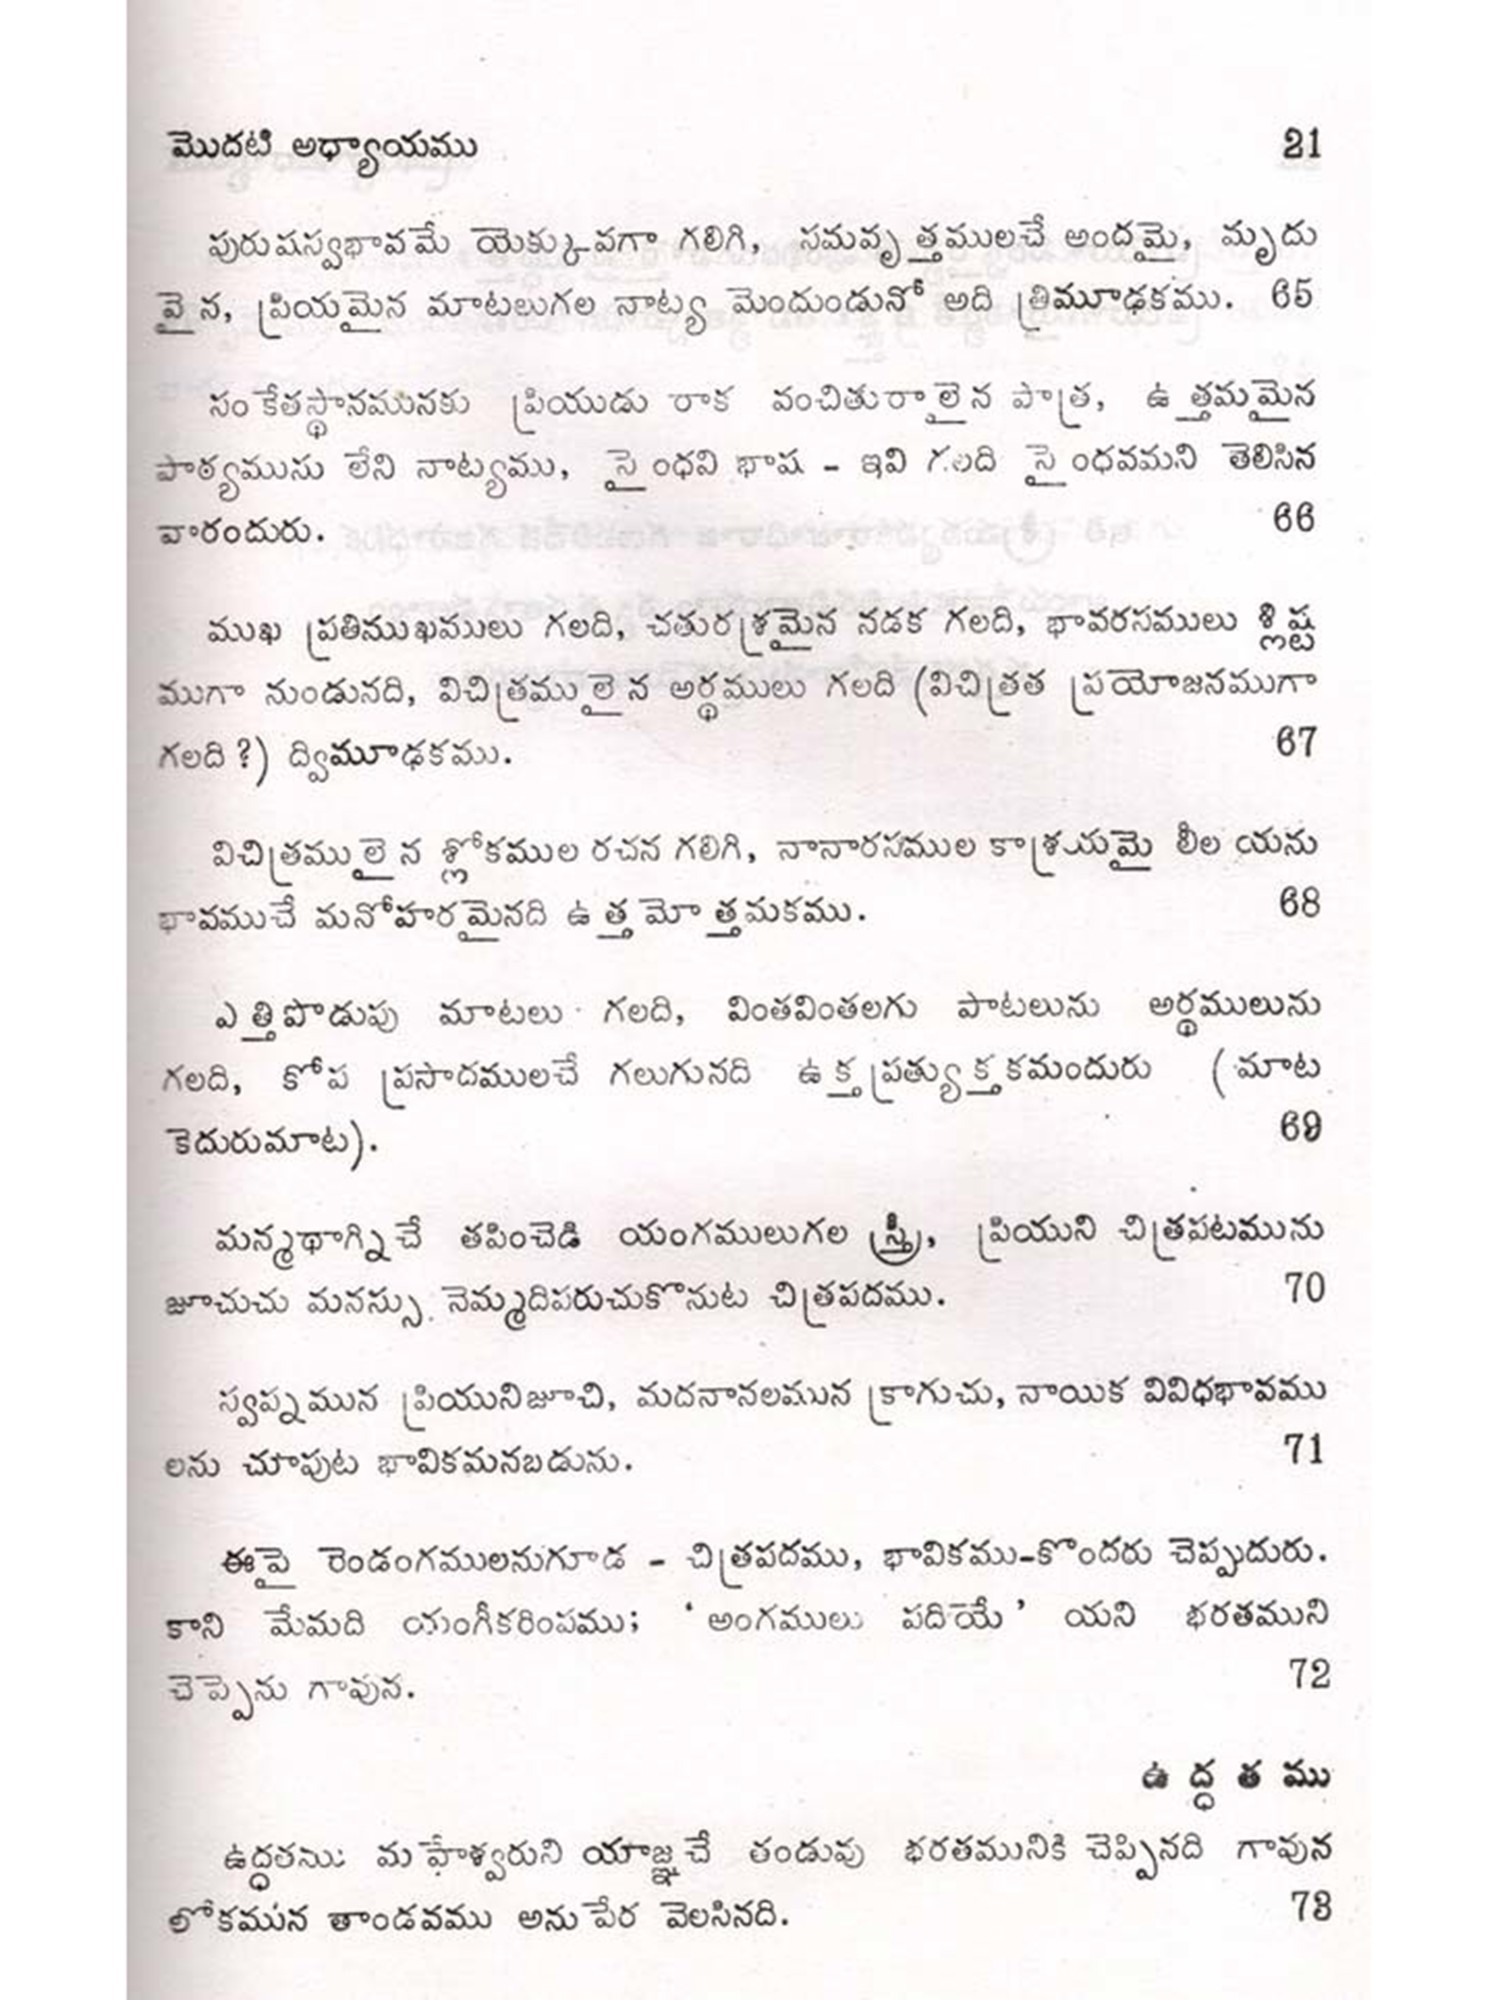 మొదటి అధ్యాయము 21
పురుషస్వభావమే యెక్కువగా గలిగి, సమవృత్తములచే అందమై, మృదు
వైన, ప్రియమైన మాటలుగల నాట్య మెందుండునో అది త్రిమూఢకము. 65
సంకేతస్థానమునకు ప్రియుడు రాక వంచితురాలైన పాత్ర, ఉత్తమమైన
పాఠ్యముసు లేని నాట్యము, సైంధవి భాష - ఇవి గలది సైంధవమని తెలిసిన
వారందురు. 66
ముఖ ప్రతిముఖములు గలది, చతురశ్రమైన నడక గలది, భావరసములు శ్లిష్ట
ముగా నుండునది, విచిత్రములైన అర్థములు గలది (విచిత్రత ప్రయోజనముగా
గలది?) ద్విమూఢకము. 67
విచిత్రములైన శ్లోకముల రచన గలిగి, నానారసముల కాశ్రయమై లీల యను
భావముచే మనోహరమైనది ఉత్తమోత్తమకము. 68
ఎత్తిపొడుపు మాటలు గలది, వింతవింతలగు పాటలును అర్థములును
గలది, కోప ప్రసాదములచే గలుగునది ఉక్తప్రత్యుక్తకమందురు (మాట
కెదురుమాట). 69
మన్మథాగ్నిచే తపించెడి యంగములుగల స్త్రీ, ప్రియుని చిత్రపటమును
జూచుచు మనస్సు నెమ్మదిపరుచుకొనుట చిత్రపదము. 70
స్వప్నమున ప్రియునిజూచి, మదనానలమున క్రాగుచు, నాయిక వివిధభావము
లను చూపుట భావికమనబడును. 71
ఈపై రెండంగములనుగూడ - చిత్రపదము, భావికము-కొందరు చెప్పుదురు.
కాని మేమది యంగీకరింపము; 'అంగములు పదియే' యని భరతముని
చెప్పెను గావున. 72
ఉద్ధతము
ఉద్ధతము మహేశ్వరుని యాజ్ఞచే తండువు భరతమునికి చెప్పినది గావున
లోకమున తాండవము అనుపేర వెలసినది. 73